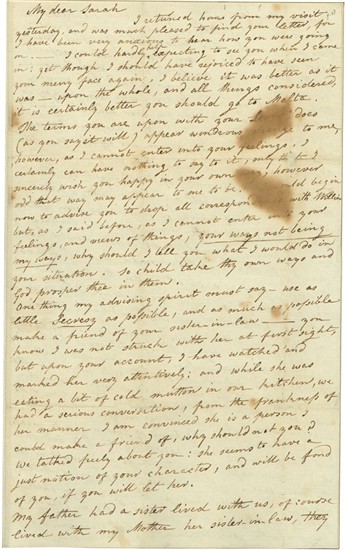 My dear Sarah
I returned home from my visit
yesterday, and was much pleased to find your letter for
I have been very anxious to hear how you were going
on — I could hardly expecting to see you when I came
in: yet though I should have rejoiced to have seen
your merry face again, I believe it was better as it
was — upon the whole, and all things considered,
it is certainly better you should go to Malta.
The terms you are upon with your does
(as you say it will) appear wondrous to me,
however, as I cannot enter into your feelings, I
certainly can have nothing to say to it, only that I
sincerely wish you happy in your own way, however
odd that way may appear to me to be. I would begin
now to advise you to drop all correspon with William
but, as I said before, as I cannot enter into your
feelings, and views of things, your ways not being
my ways, why should I tell you what I would do in
your situation. So child take thy own ways and
God prosper thee in them.
One thing my advising spirit must say — use as
little Secrecy as possible, and as much as possible
make a friend of your sister-in-law — you
know I was not struck with her at first sight,
but upon your account, I have watched and
marked her very attentively: and while she was
eating a bit of cold mutton in our kitchen, we
had a serious conversation, from the frankness of
her manner I am convinced she is a person I
could make a friend of, why should not you?
we talked freely about you: she seems to have a
just notion of your character, and will be fond
of you, if you will let her.
My father had a sister lived with us, of course
lived with my Mother her sister-in-law, they